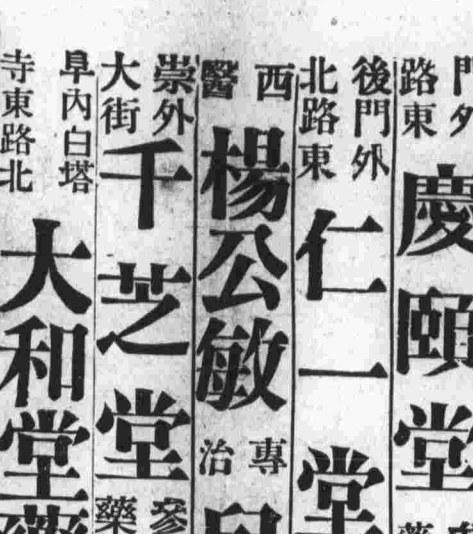 門外路東慶頤堂
後門外北路東仁一堂
西醫楊公敏專治
崇外大街千芝堂參藥
阜內白塔寺東路北大和堂藥